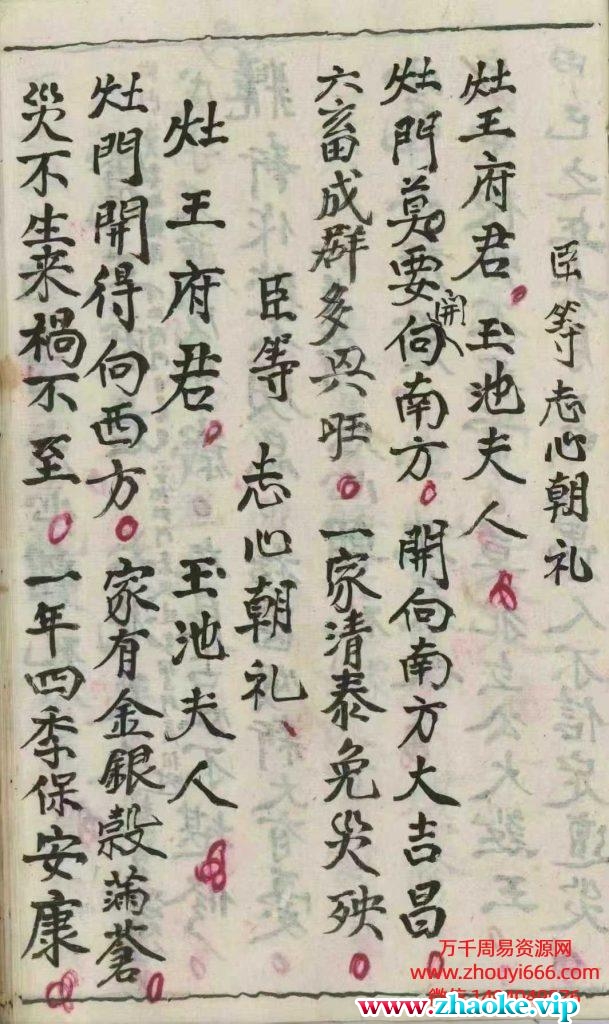 臣等志心朝礼
灶王府君。玉池夫人。
灶門莫要開向南方。開向南方大吉昌。
六畜成群多兴旺。一家清泰免災殃。
臣等 志心朝礼、
灶王府君。玉池夫人。
灶門開得向西方。家有金銀穀蒲蒼。
災不生来禍不至。一年四季保安康。
万千周易资源网
www.zhouyi666.com
www.zhaoke.vip